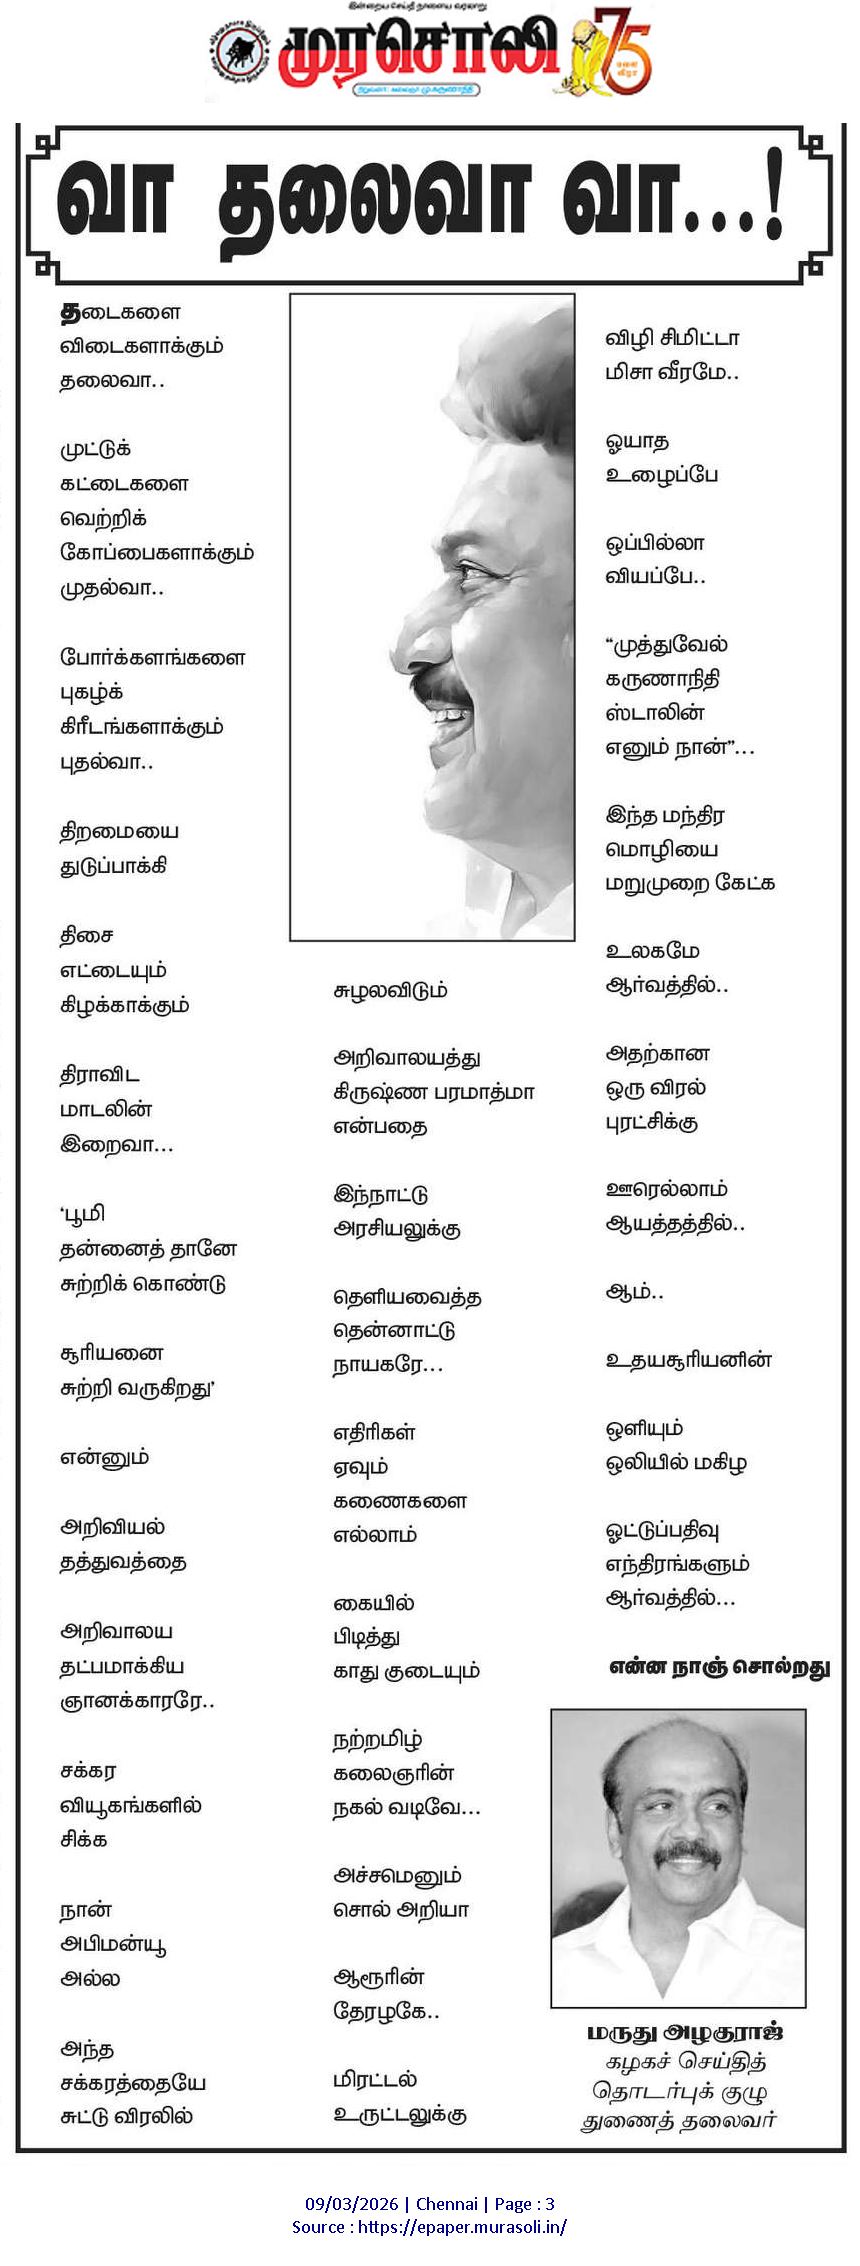 இன்றைய செய்தி நாளைய வரலாறு
முரசொலி 75
நிறுவனர்: கலைஞர் மு.கருணாநிதி
வா தலைவா வா...!
தடைகளை
விடைகளாக்கும்
தலைவா..
முட்டுக்
கட்டைகளை
வெற்றிக்
கோப்பைகளாக்கும்
முதல்வா..
போர்க்களங்களை
புகழ்க்
கிரீடங்களாக்கும்
புதல்வா..
திறமையை
துடுப்பாக்கி
திசை
எட்டையும்
கிழக்காக்கும்
திராவிட
மாடலின்
இறைவா...
‘பூமி
தன்னைத் தானே
சுற்றிக் கொண்டு
சூரியனை
சுற்றி வருகிறது’
என்னும்
அறிவியல்
தத்துவத்தை
அறிவாலய
தட்பமாக்கிய
ஞானக்காரரே..
சக்கர
வியூகங்களில்
சிக்க
நான்
அபிமன்யூ
அல்ல
அந்த
சக்கரத்தையே
சுட்டு விரலில்
சுழலவிடும்
அறிவாலயத்து
கிருஷ்ண பரமாத்மா
என்பதை
இந்நாட்டு
அரசியலுக்கு
தெளியவைத்த
தென்னாட்டு
நாயகரே...
எதிரிகள்
ஏவும்
கணைகளை
எல்லாம்
கையில்
பிடித்து
காது குடையும்
நற்றமிழ்
கலைஞரின்
நகல் வடிவே...
அச்சமெனும்
சொல் அறியா
ஆரூரின்
தேரழகே..
மிரட்டல்
உருட்டலுக்கு
விழி சிமிட்டா
மிசா வீரமே..
ஓயாத
உழைப்பே
ஒப்பில்லா
வியப்பே..
“முத்துவேல்
கருணாநிதி
ஸ்டாலின்
எனும் நான்”...
இந்த மந்திர
மொழியை
மறுமுறை கேட்க
உலகமே
ஆர்வத்தில்..
அதற்கான
ஒரு விரல்
புரட்சிக்கு
ஊரெல்லாம்
ஆயத்தத்தில்..
ஆம்..
உதயசூரியனின்
ஒளியும்
ஒலியில் மகிழ
ஓட்டுப்பதிவு
எந்திரங்களும்
ஆர்வத்தில்...
என்ன நாஞ் சொல்றது
மருது அழகுராஜ்
கழகச் செய்தித்
தொடர்புக் குழு
துணைத் தலைவர்
09/03/2026 | Chennai | Page : 3
Source : https://epaper.murasoli.in/